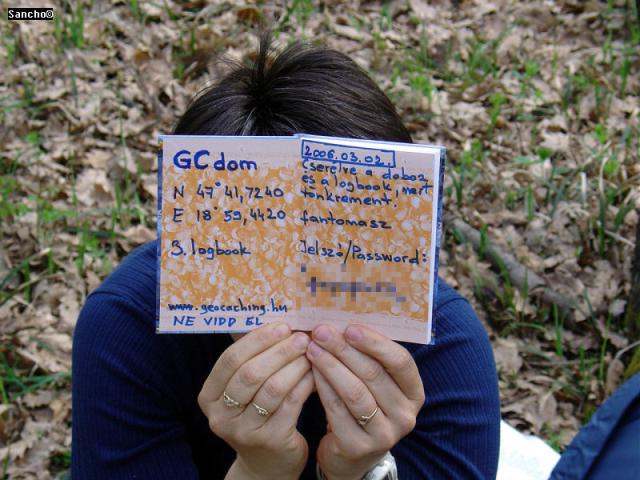 Sancho©
GCdom
N 47°41,7240
E 18°59,4420
3. logbook
www.geocaching.hu
NE VIDD EL
2006.03.02.
Cserélve a doboz
és a logbook, mert
tönkrement.
fantomasz
Jelszó/Password: